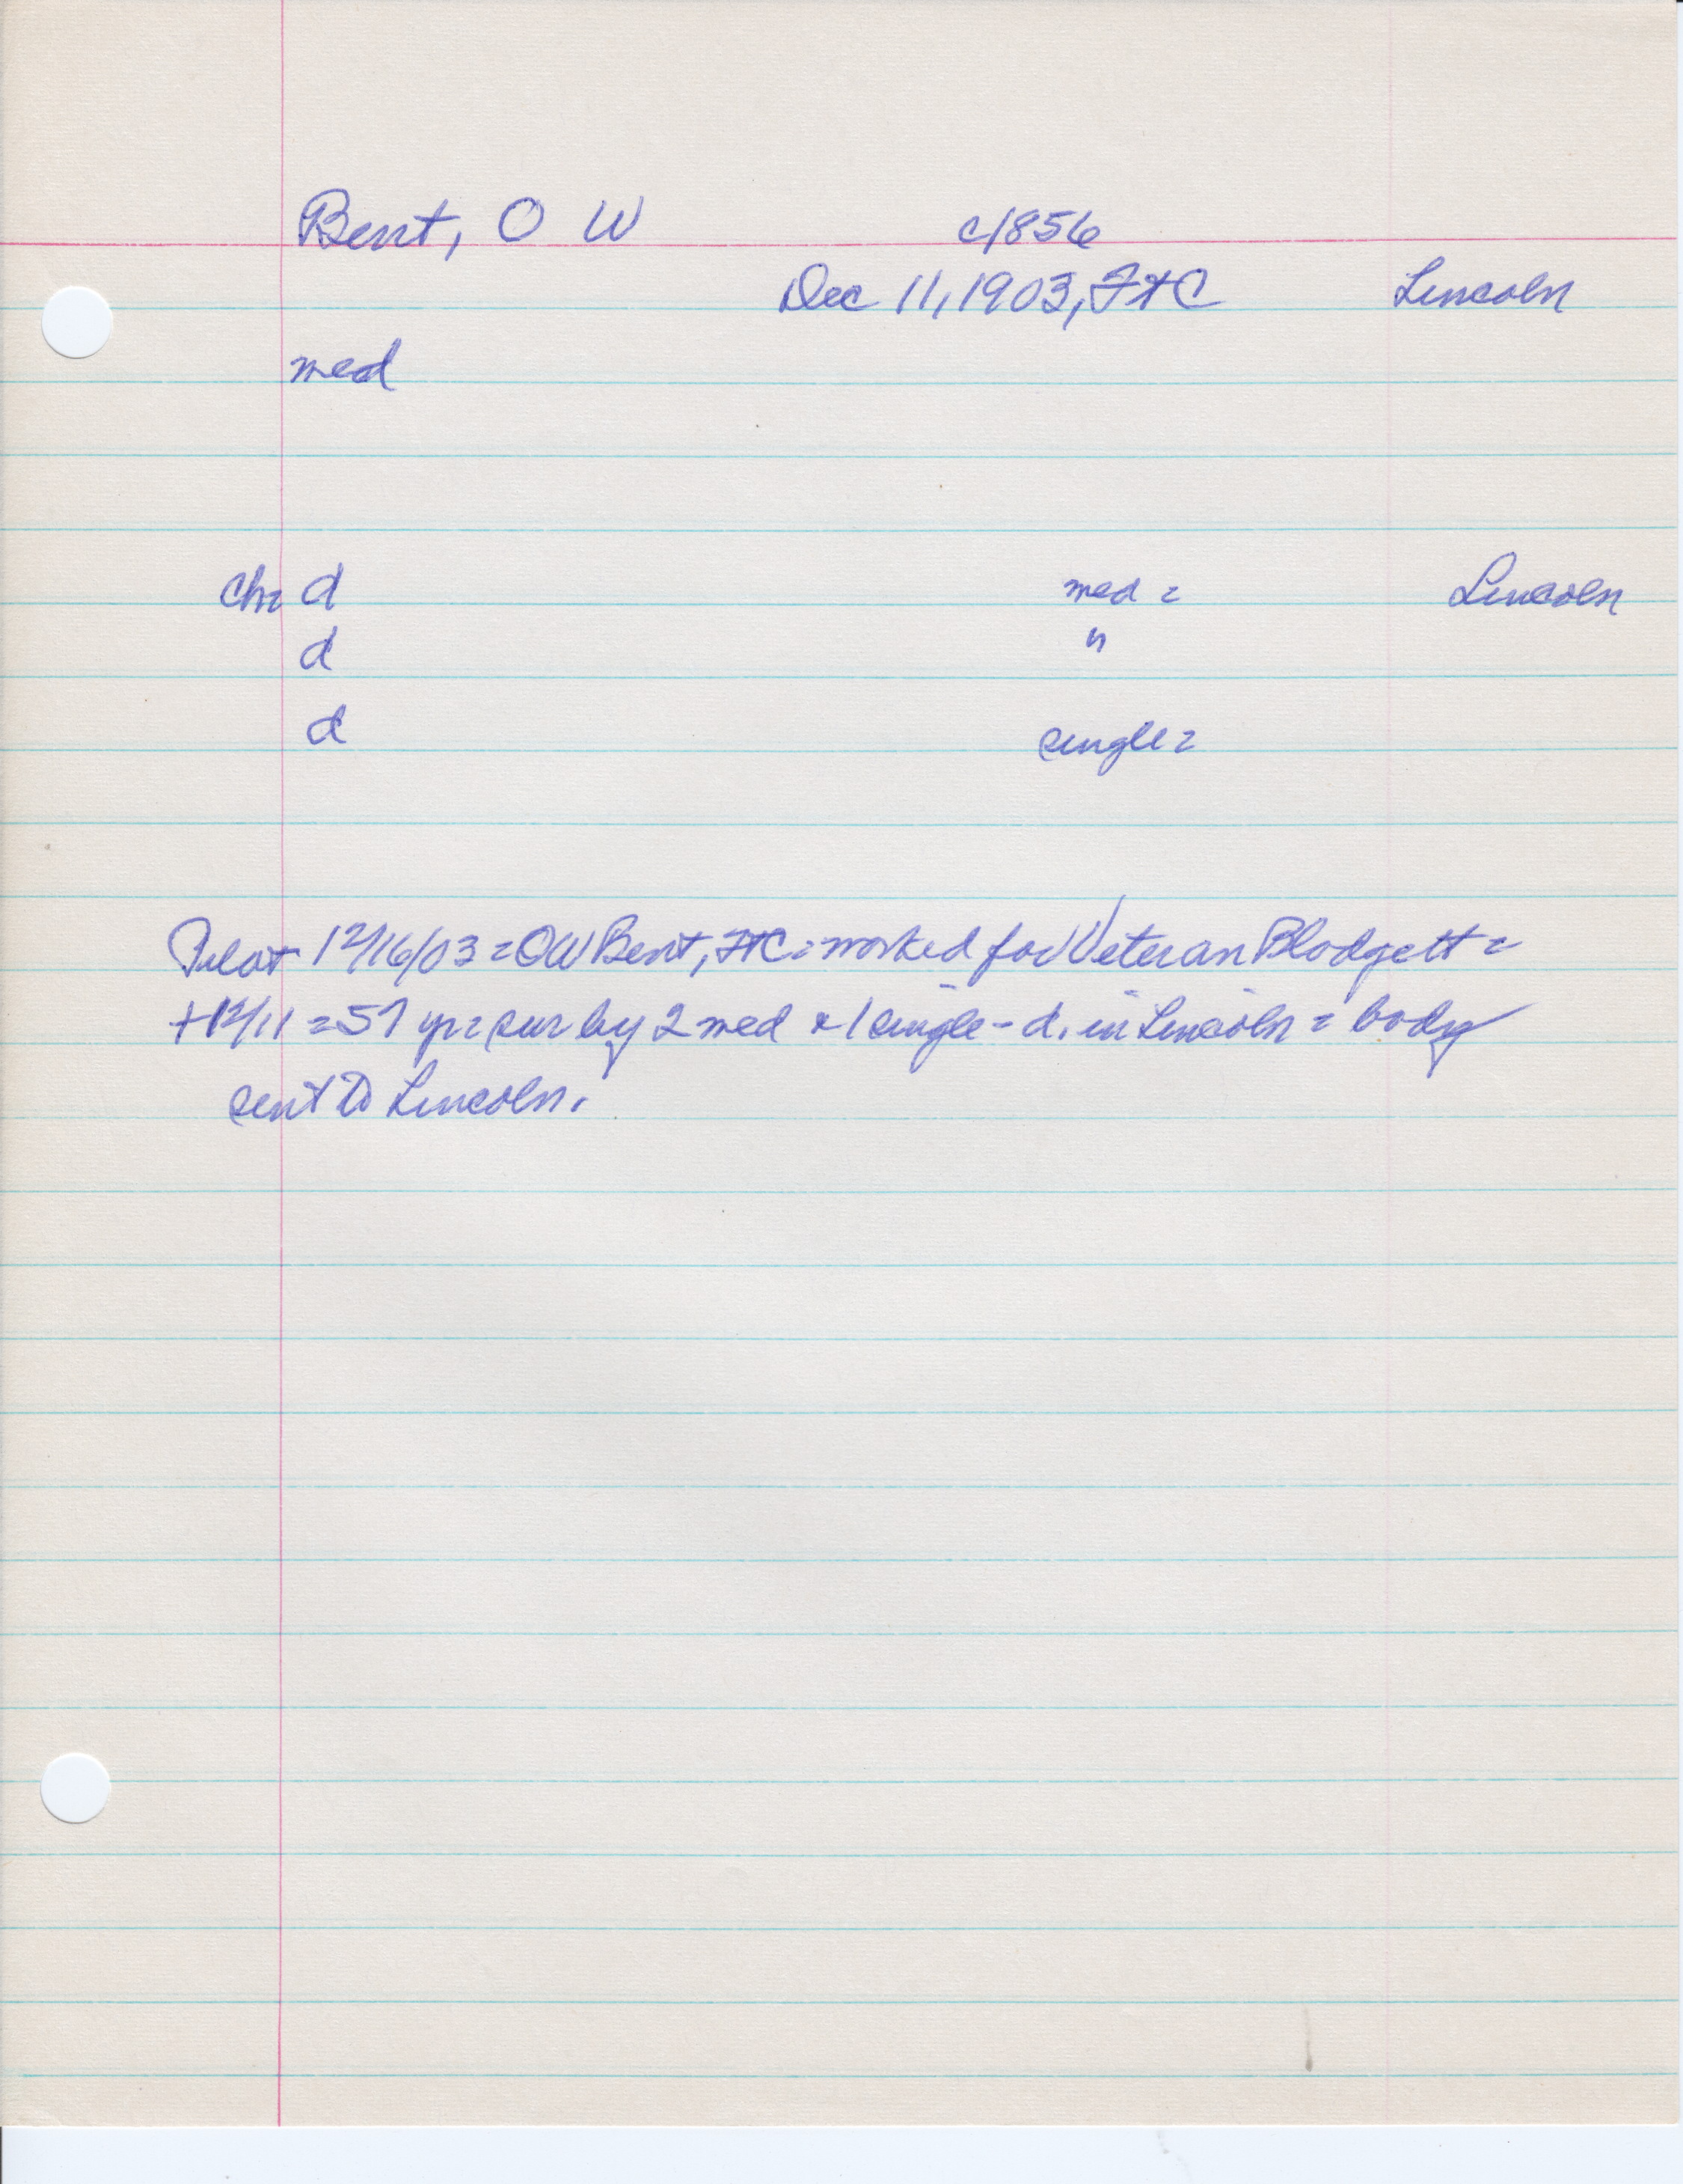 Bent, O W c1856
Dec 11, 1903, FtC Lincoln
med
Ch= d med = Lincoln
d "
d single =
Pilot 12/16/03 = OW Bent, FtC = worked for Veteran Blodgett =
+12/11 = 57 yr = sur by 2 med & 1 single - d. in Lincoln = body
sent to Lincoln.